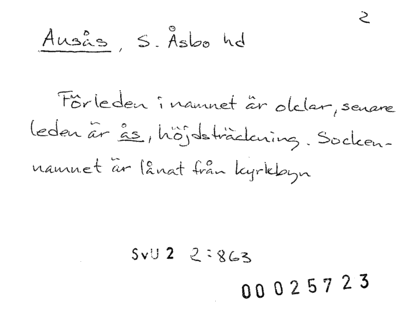 2
Ausås, S. Åsbo hd
Förleden i namnet är oklar, senare
leden är ås, höjdsträckning. Socken-
namnet är lånat från kyrkbyn
SvU 2 2:863
00025723